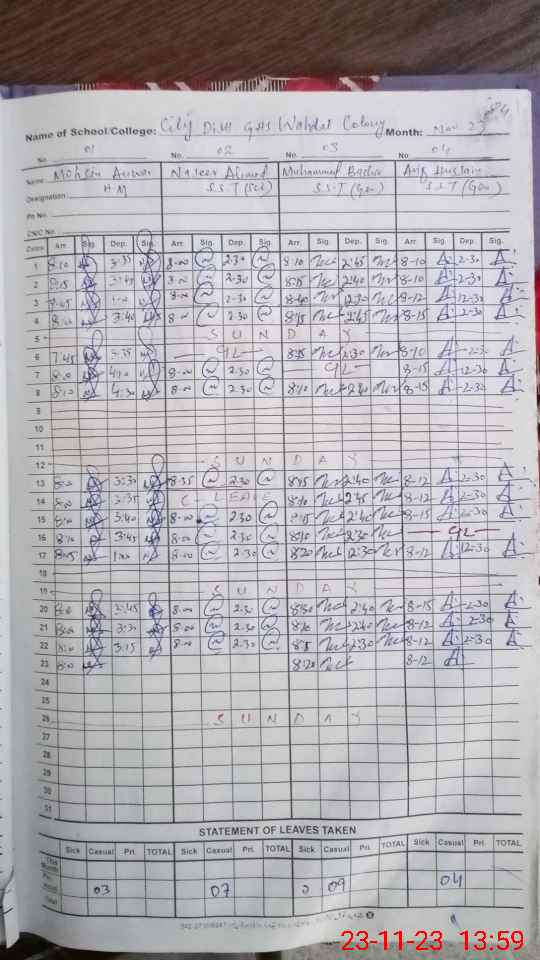 Name of School/College: City Distt GHS Wahdat Colony Month: Nov 23
No. 01 No. 02 No. 03 No. 04
Name Mohsin Anwar Naseer Ahmad Muhammad Bashir Arif Hussain
Designation: H.M S.S.T (Sci) S.S.T (Gen) S.S.T (Gen)
Pri No.
CNIC No.
Dates Arr. Sig. Dep. Sig. Arr. Sig. Dep. Sig. Arr. Sig. Dep. Sig. Arr. Sig. Dep. Sig.
1 8-10 3:35 8-00 2-30 8-10 2:45 8-10 2-30
2 8:15 3:45 2-30 8:15 2:40 8-10 2-30
3 7:45 8-00 2-30 8-40 12:30 8-12 12-30
4 8:00 3:40 8-00 2-30 8:15 2:45 8-15 2-30
5 S U N D A Y
6 7.45 3:35 C/L 8:15 2:30 8-10 2-30
7 8:00 4:00 8-00 2.30 C/L 8-15 12-30
8 8:10 4:30 8-00 2.30 8:10 2:40 8-15 2-30
9
10
11
12 S U N D A Y
13 8:00 3:30 8-35 2.30 8:15 2:40 8-12 2-30
14 8:00 3:35 C. LEAVE 8:10 2:45 8-12 2-30
15 8:00 3:40 8-00 2.30 8:15 2:40 8-15 2-30
16 8:10 3:45 8-00 2.30 8:10 2:30 C/L
17 8:05 1:00 8-00 2.30 8:20 12:30 8-12 12-30
18
19 S U N D A Y
20 8:00 2:45 8-00 2.30 8:30 2:40 8-15 2-30
21 8:00 3:30 8-00 2.30 8:10 2:40 8-12 2-30
22 8:00 3.15 8-00 2.30 8:15 2:30 8-12 2-30
23 8:00 8:20 8-12
24
25
26 S U N D A Y
27
28
29
30
31
STATEMENT OF LEAVES TAKEN
Sick Casual Pri. TOTAL Sick Casual Pri. TOTAL Sick Casual Pri. TOTAL Sick Casual Pri. TOTAL
This Month
03 07 09 04
Total
23-11-23 13:59